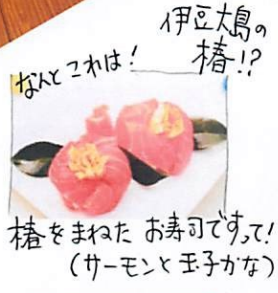 伊豆大島の
椿!?
なんと これは!
椿をまねた お寿司ですって!
(サーモンと玉子かな)